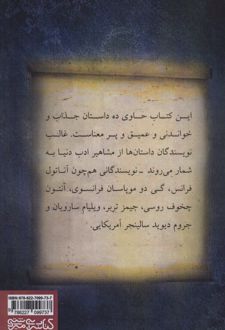 این کتاب حاوی ده داستان جذاب و
خواندنی و عمیق و پر معناست. غالب
نویسندگان داستان‌ها از مشاهیر ادب دنیا به
شمار می‌روند ـ نویسندگانی هم‌چون آناتول
فرانس، گی دو موپاسان فرانسوی، آنتون
چخوف روسی، جیمز تربر، ویلیام سارویان و
جروم دیوید سالینجر آمریکایی.
ISBN: 978-622-7099-73-7
9 786227 099737